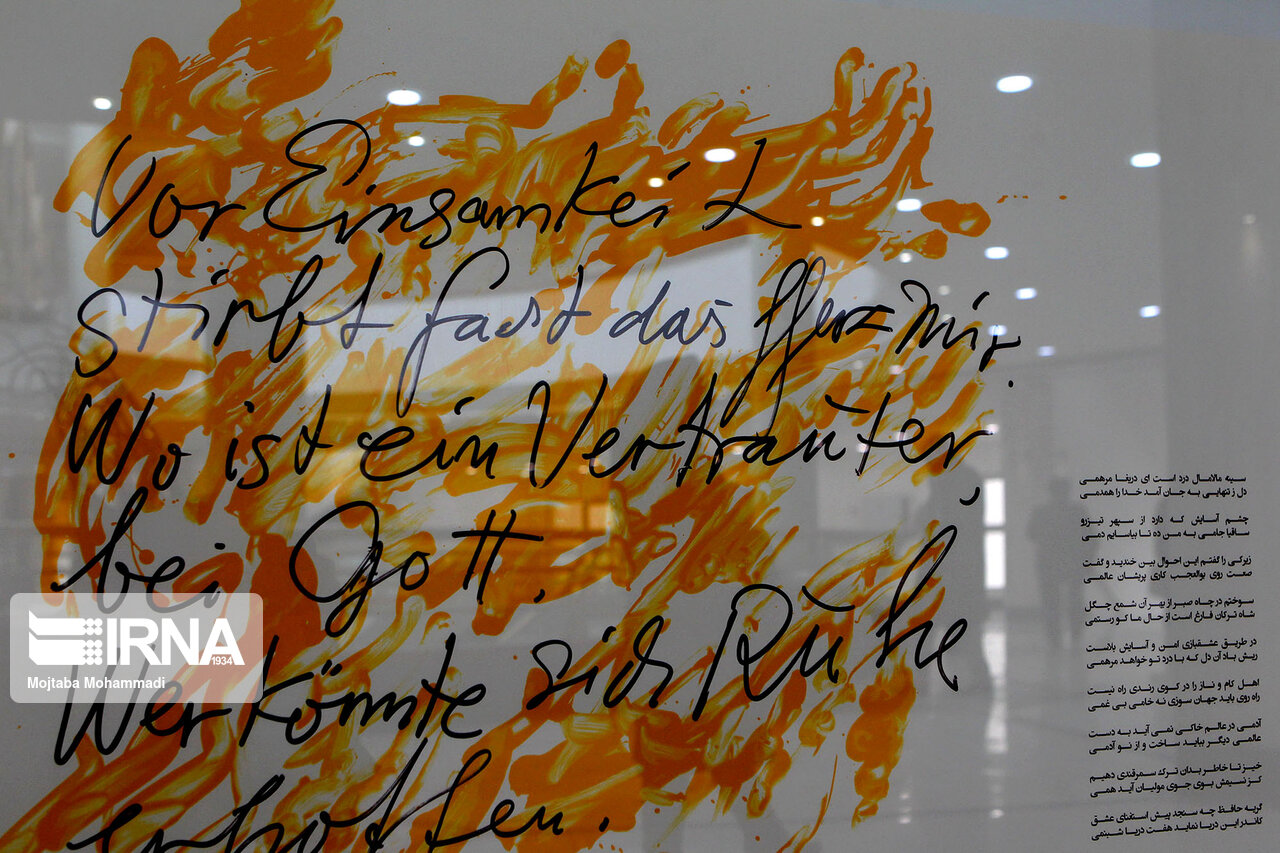 Vor Einsamkeit
stirbt fast das Herz mir.
Wo ist ein Vertrauter
bei Gott.
Wer könnte sich Ruhe
erhoffen.
سینه مالامال درد است ای دریغا مرهمی
دل ز تنهایی به جان آمد خدا را همدمی
چشم آسایش که دارد از سپهر تیزرو
ساقیا جامی به من ده تا بیاسایم دمی
زیرکی را گفتم این احوال بین خندید و گفت
صعب روزی بوالعجب کاری پریشان عالمی
سوختم در چاه صبر از بهر آن شمع چگل
شاه ترکان فارغ است از حال ما کو رستمی
در طریق عشقبازی امن و آسایش بلاست
ریش باد آن دل که با درد تو خواهد مرهمی
اهل کام و ناز را در کوی رندی راه نیست
ره روی باید جهان سوزی نه خامی بی غمی
آدمی در عالم خاکی نمی آید به دست
عالمی دیگر بباید ساخت و از نو آدمی
خیز تا خاطر بدان ترک سمرقندی دهیم
کز نسیمش بوی جوی مولیان آید همی
گریه حافظ چه سنجد پیش استغنای عشق
کاندر این دریا نماید هفت دریا شبنمی
IRNA
1934
Mojtaba Mohammadi